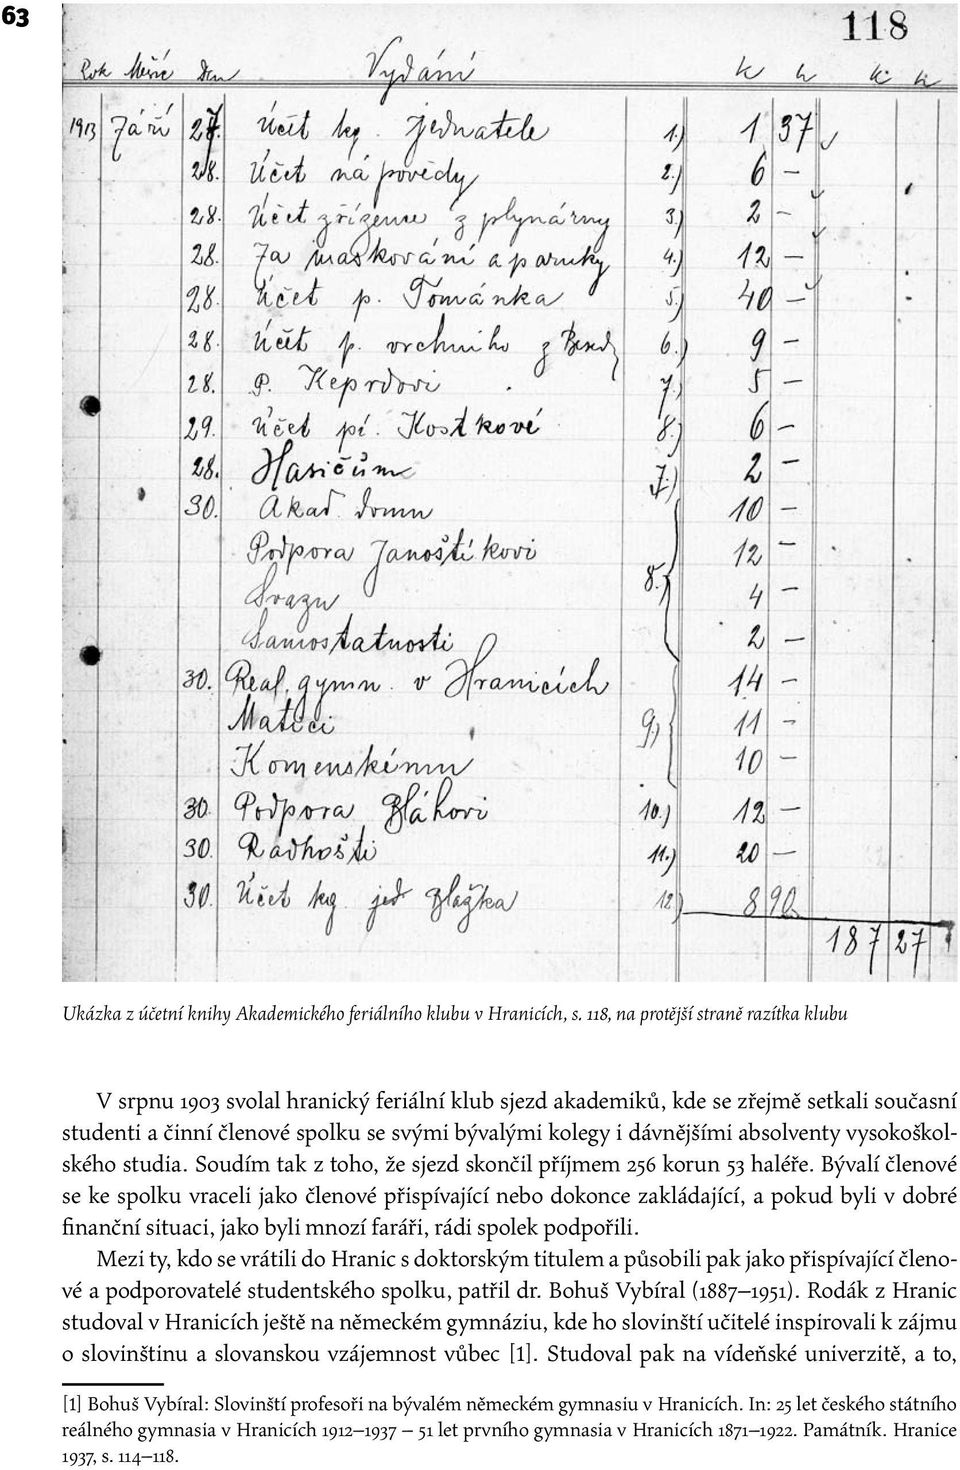 63
118
Rok Měsíc Den Vydání K h K h
1913 Září 27. Účet kg. jednatele 1.) 1 37
28. Účet nápovědy 2.) 6 –
28. Účet zřízence z plynárny 3.) 2 –
28. Za maskování a paruky 4.) 12 –
28. Účet p. Tománka 5.) 40 –
28. Účet p. vrchního z Besedy 6.) 9 –
28. P. Keprdovi 7.) 5 –
29. Účet pí. Kostkové 8.) 6 –
28. Hasičům 7.) 2 –
30. Akad. domu 10 –
Podpora Janoštíkovi 12 –
Svazu 8.) 4 –
Samostatnosti 2 –
30. Real. gymn. v Hranicích 14 –
Matici 9.) 11 –
Komenskému 10 –
30. Podpora Bláhovi 10.) 12 –
30. Radhošti 11.) 20 –
30. Účet kg. jed Blažka 12) 8 90
187 27
Ukázka z účetní knihy Akademického feriálního klubu v Hranicích, s. 118, na protější straně razítka klubu
V srpnu 1903 svolal hranický feriální klub sjezd akademiků, kde se zřejmě setkali současní
studenti a činní členové spolku se svými bývalými kolegy i dávnějšími absolventy vysokoškol-
ského studia. Soudím tak z toho, že sjezd skončil příjmem 256 korun 53 haléře. Bývalí členové
se ke spolku vraceli jako členové přispívající nebo dokonce zakládající, a pokud byli v dobré
finanční situaci, jako byli mnozí faráři, rádi spolek podpořili.
Mezi ty, kdo se vrátili do Hranic s doktorským titulem a působili pak jako přispívající členo-
vé a podporovatelé studentského spolku, patřil dr. Bohuš Vybíral (1887–1951). Rodák z Hranic
studoval v Hranicích ještě na německém gymnáziu, kde ho slovinští učitelé inspirovali k zájmu
o slovinštinu a slovanskou vzájemnost vůbec [1]. Studoval pak na vídeňské univerzitě, a to,
[1] Bohuš Vybíral: Slovinští profesoři na bývalém německém gymnasiu v Hranicích. In: 25 let českého státního
reálného gymnasia v Hranicích 1912–1937 – 51 let prvního gymnasia v Hranicích 1871–1922. Památník. Hranice
1937, s. 114–118.